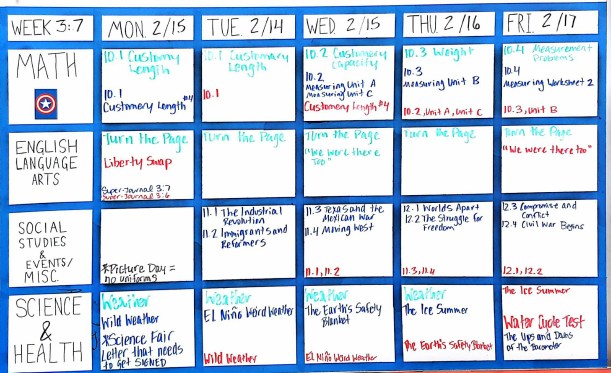 WEEK 3:7
MON. 2/15
TUE. 2/14
WED 2/15
THU. 2/16
FRI. 2/17
MATH
10.1 Customary
Length
10.1
Customery Length #4
10.1 Customary
Length
10.1
10.2 Customery
Capacity
10.2
Measuring Unit A
Measuring Unit C
Customery Length #4
10.3 Weight
10.3
Measuring Unit B
10.2, Unit A, Unit C
10.4 Measurement
Problems
10.4
Measuring Worksheet 2
10.3, Unit B
ENGLISH
LANGUAGE
ARTS
Turn the Page
Liberty Swap
Super-Journal 3:7
Super-Journal 3:6
Turn the Page
Turn the Page
"We were there
too"
Turn the Page
Turn the Page
"We were there too"
SOCIAL
STUDIES
&
EVENTS/
MISC.
*Picture Day =
no uniforms
11.1 The Industrial
Revolution
11.2 Immigrants and
Reformers
11.3 Texas and the
Mexican War
11.4 Moving West
11.1, 11.2
12.1 Worlds Apart
12.2 The Struggle for
Freedom
11.3, 11.4
12.3 Compromise and
Conflict
12.4 Civil War Begins
12.1, 12.2
SCIENCE
&
HEALTH
Weather
Wild Weather
*Science Fair
Letter that needs
to get SIGNED
Weather
El Niño Weird Weather
Wild Weather
Weather
The Earth's Safety
Blanket
El Niño Weird Weather
Weather
The Ice Summer
The Earth's Safety Blanket
The Ice Summer
Water Cycle Test
The Ups and Downs
of the Barometer